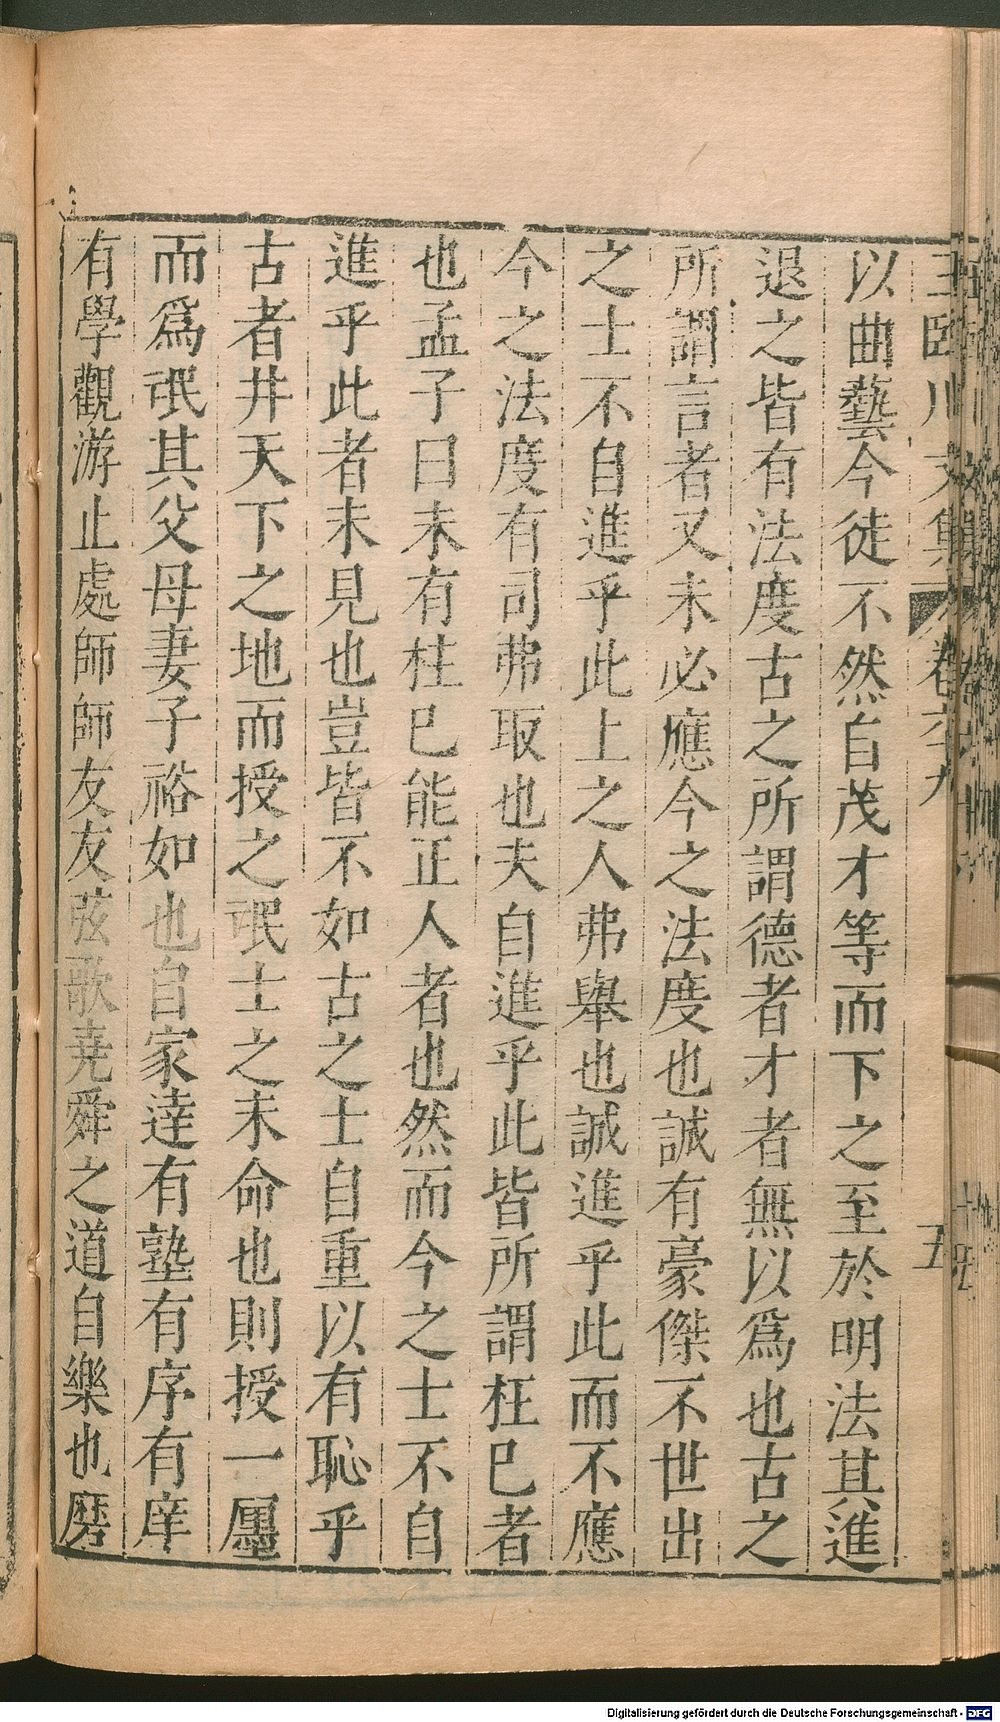 王臨川文集 卷六九 五
以曲藝今徒不然自茂才等而下之至於明法其進
退之皆有法度古之所謂德者才者無以爲也古之
所謂言者又未必應今之法度也誠有豪傑不世出
之士不自進乎此上之人弗舉也誠進乎此而不應
今之法度有司弗取也夫自進乎此皆所謂枉巳者
也孟子曰未有枉巳能正人者也然而今之士不自
進乎此者未見也豈皆不如古之士自重以有恥乎
古者井天下之地而授之氓士之未命也則授一廛
而爲氓其父母妻子裕如也自家達有塾有序有庠
有學觀游止處師師友友弦歌堯舜之道自樂也磨
Digitalisierung gefördert durch die Deutsche Forschungsgemeinschaft - DFG